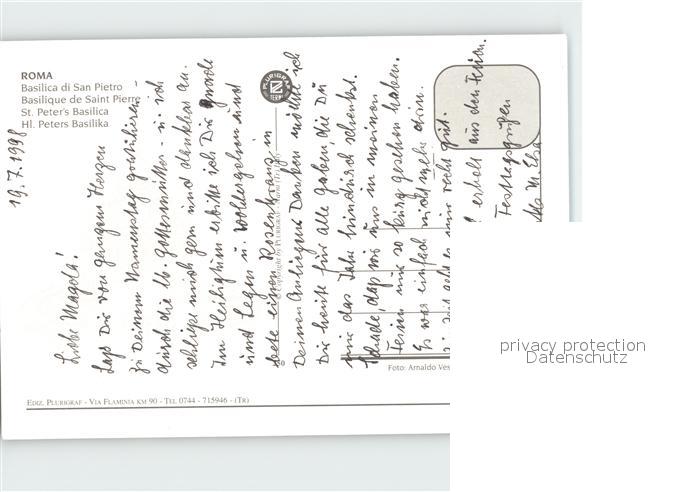 ROMA
Basilica di San Pietro
Basilique de Saint Pierre
St. Peter's Basilica
Hl. Peters Basilika
PLURIGRAF
N
TERNI
19.7.1998
Liebe Magda!
Laß Dir von ganzem Herzen
zu Deinem Namenstag gratulieren -
durch die lb. Gottesmutter - u. ich
schließe mich gern und dankbar an.
Im Heiligtum erbitte ich Dir Gnade
und Segen u. Wohlergehen und
bete einen Rosenkranz in
Deinen Anliegen. Danken möchte ich
Dir heute für alle Gaben, die Du
mir das Jahr hindurch schenkst.
Schade, daß wir uns in meinen
Ferien nur so kurz gesehen haben.
Es war einfach nicht mehr drin.
geht es mir recht gut.
erholt aus den Ferien.
Festtagsgrüßen
Copyright by PLURIGRAF
Foto: Arnaldo Ves
EDIZ. PLURIGRAF - VIA FLAMINIA KM 90 - TEL 0744 - 715946 - (TR)
privacy protection
Datenschutz